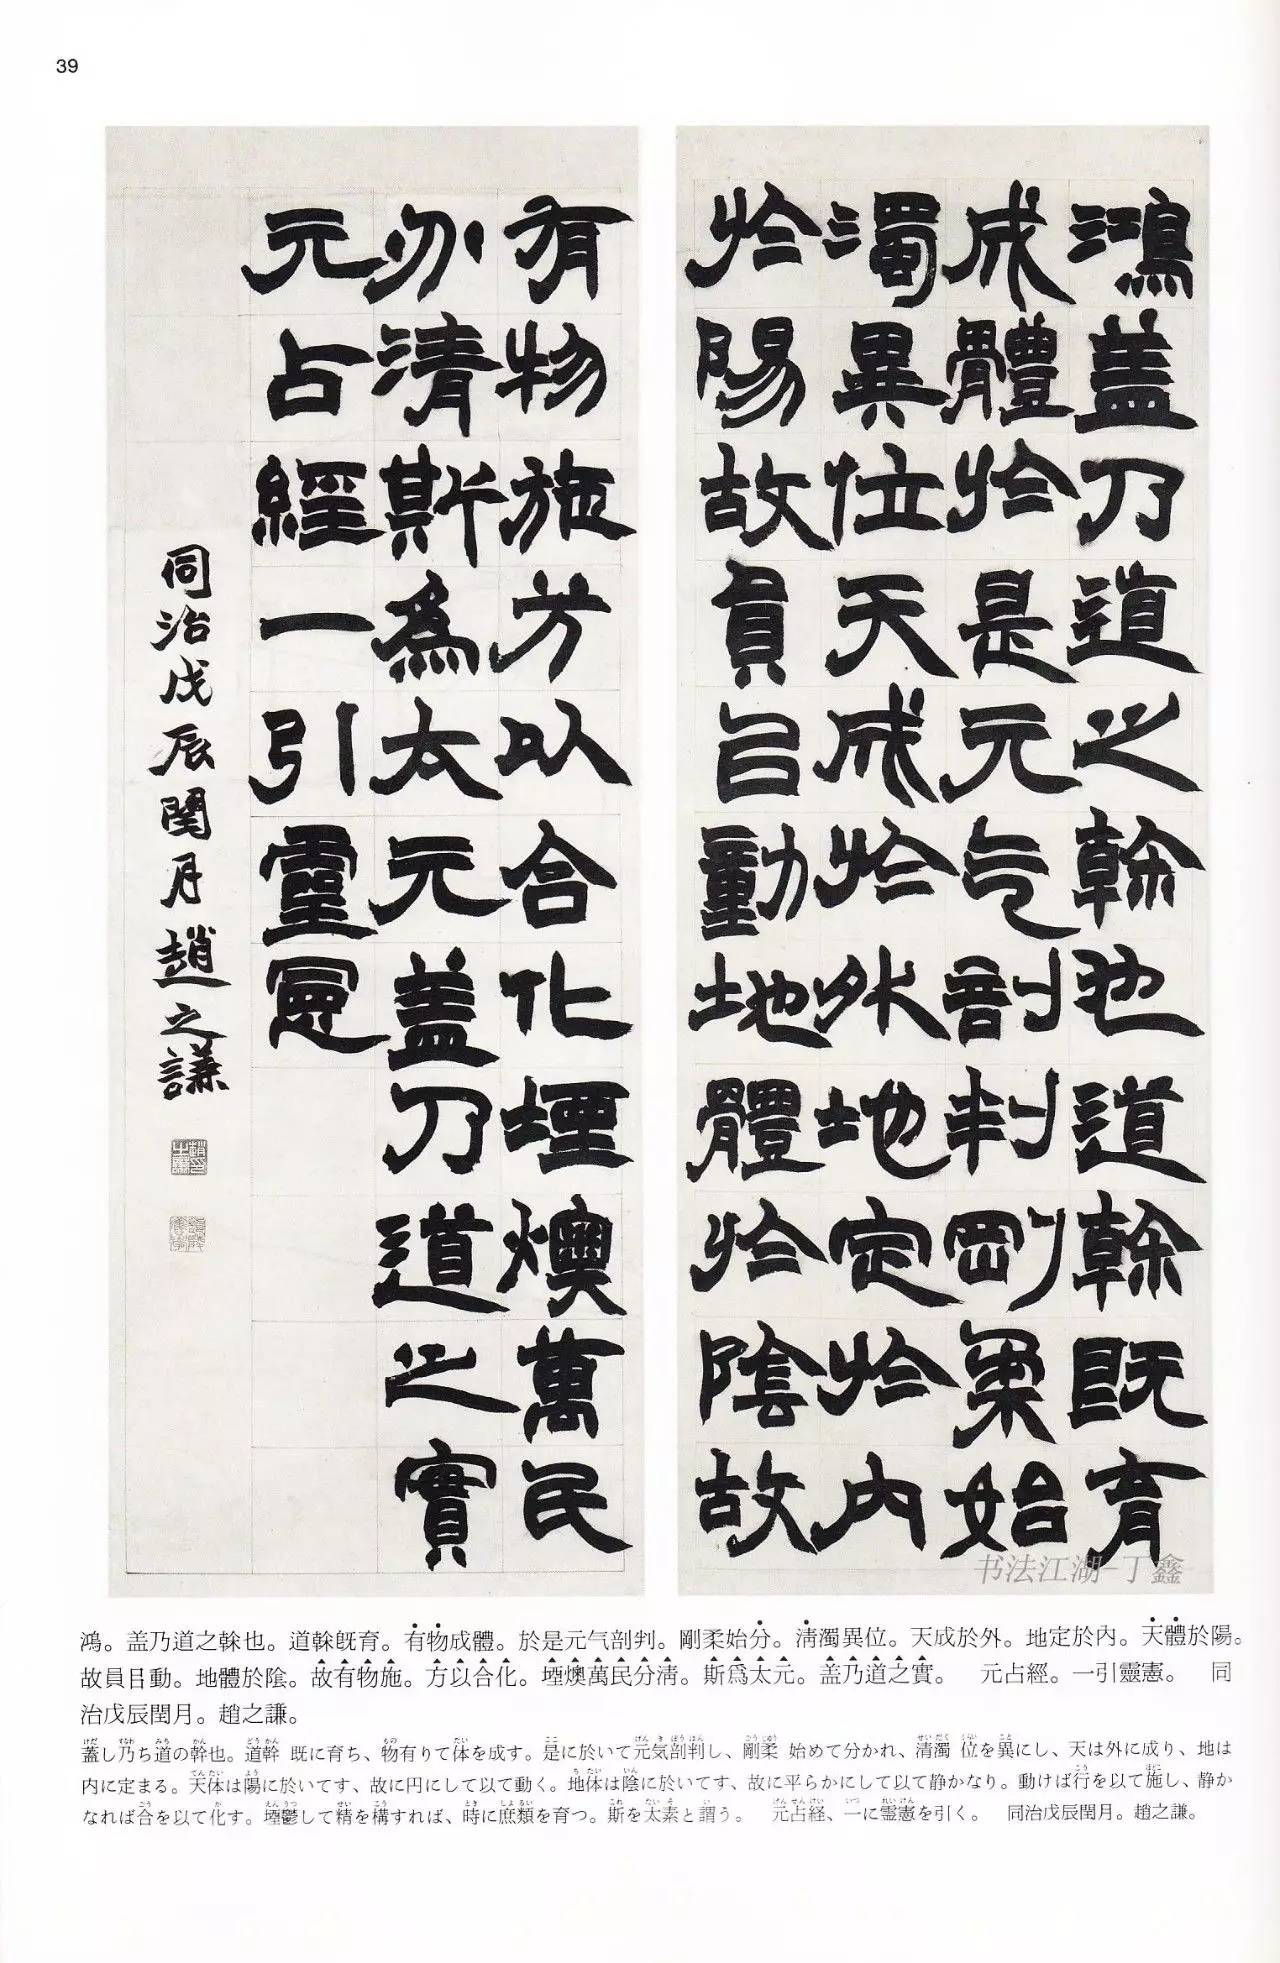 39
鴻蓋乃道之榦也道榦既育
成體於是元气剖判剛柔始
濁異位天成於外地定於內
於陽故員㠯動地體於陰故
有物施方以合化堙燠萬民
分清斯為太元蓋乃道之實
元占經一引靈憲
同治戊辰閏月趙之謙
书法江湖-丁鑫
鴻。盖乃道之榦也。道榦旣育。有物成體。於是元气剖判。剛柔始分。淸濁異位。天成於外。地定於內。天體於陽。
故員目動。地體於陰。故有物施。方以合化。堙燠萬民分淸。斯爲太元。盖乃道之實。　元占經。一引靈憲。　同
治戊辰閏月。趙之謙。
蓋し乃ち道の幹也。道幹 既に育ち、物有りて体を成す。是に於いて元気剖判し、剛柔 始めて分かれ、清濁 位を異にし、天は外に成り、地は
内に定まる。天体は陽に於いてす、故に円にして以て動く。地体は陰に於いてす、故に平らかにして以て静かなり。動けば行を以て施し、静か
なれば合を以て化す。堙鬱して精を構すれば、時に庶類を育つ。斯を太素と謂う。　元占経、一に霊憲を引く。　同治戊辰閏月。趙之謙。